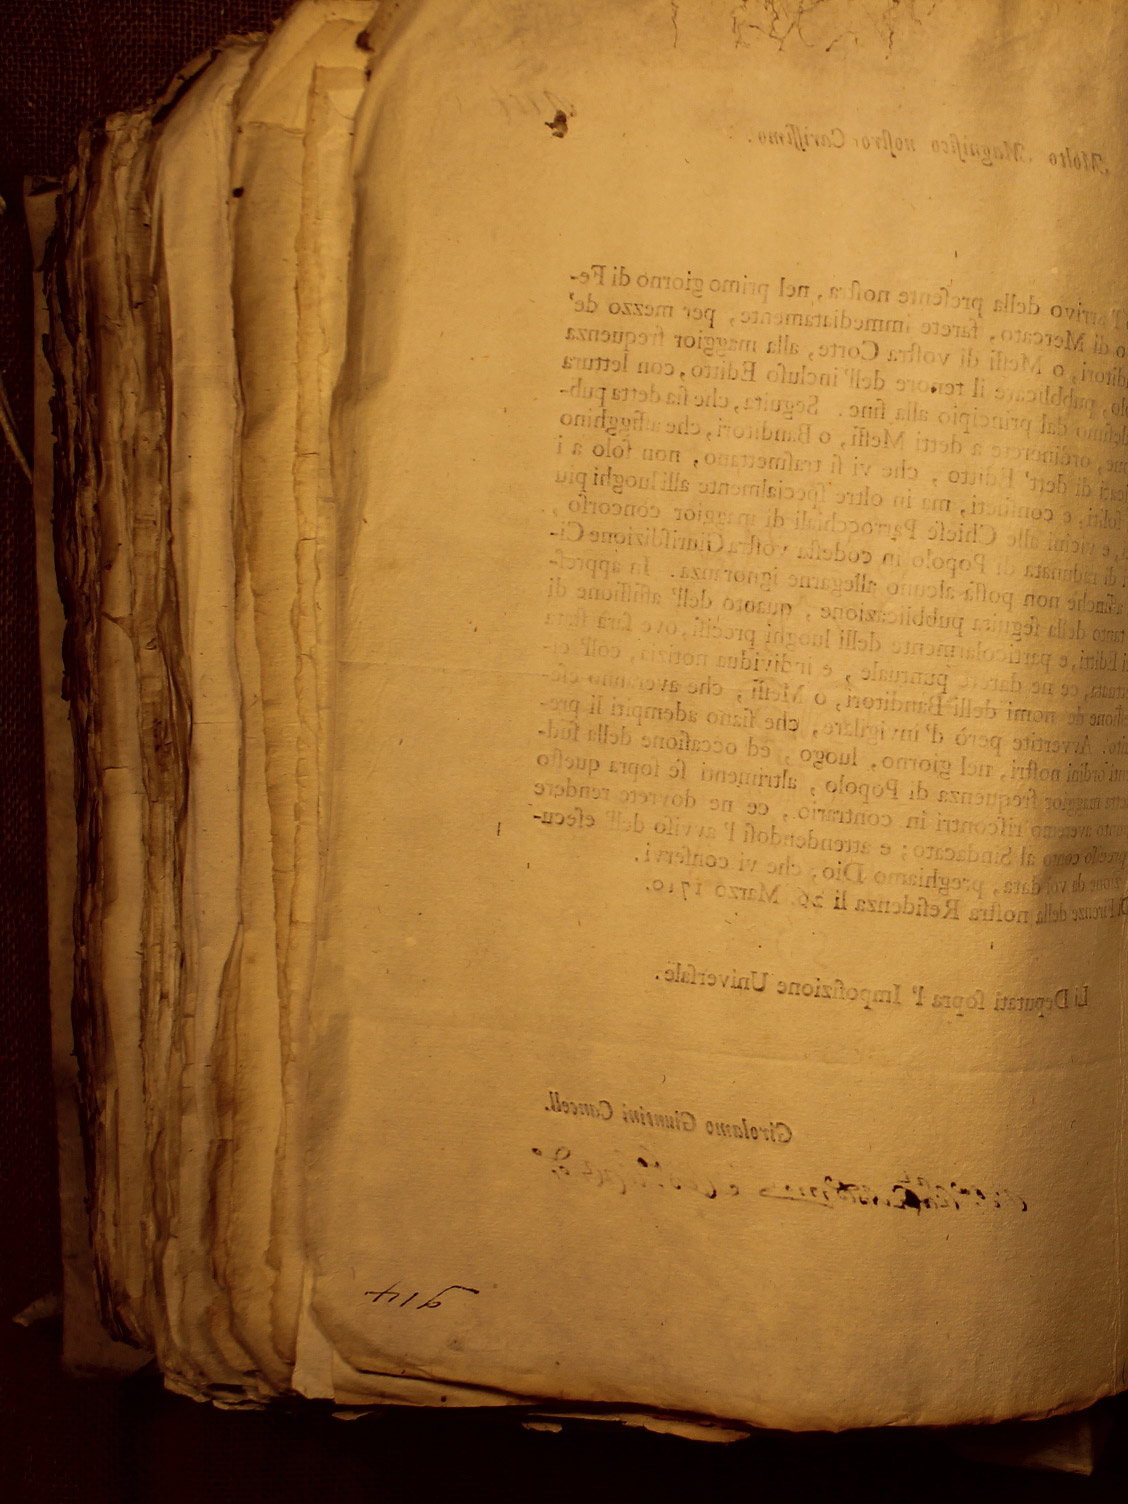 Molto Magnifico noſtro Cariſſimo.
l'arrivo della preſente noſtra, nel primo giorno di Fe-
o di Mercato, farete immediatamente, per mezzo de'
ditori, o Meſſi di voſtra Corte, alla maggior frequenza
olo, pubblicare il tenore dell' incluſo Editto, con lettura
deſimo dal principio alla fine. Seguita, che ſia detta pub-
ne, ordinerete a detti Meſſi, o Banditori, che affigghino
di dett' Editto, che vi ſi traſmettano, non ſolo a i
ſoliti, e conſueti, ma in oltre ſpecialmente alli luoghi più
e vicini alle Chieſe Parrocchiali di maggior concorſo,
i di radunata di Popolo in codeſta voſtra Giuriſdizione Ci-
affinche non poſſa alcuno allegarne ignoranza. In appreſ-
tanto della ſeguita pubblicazione, quanto dell' affiſſione di
i Editti, e particolarmente delli luoghi preciſi, ove ſarà ſtata
ce ne darete puntuale, e individua notizia, coll' eſ-
ſione de nomi delli Banditori, o Meſſi, che averanno
Avvertite però d' invigilare, che ſiano adempiti li pre-
ti ordini noſtri, nel giorno, luogo, ed occaſione della ſud-
etta maggior frequenza di Popolo, altrimenti ſe ſopra queſto
unto averemo riſcontri in contrario, ce ne dovrete rendere
preciſo conto al Sindacato; e attendendoſi l' avviſo dell' eſecu-
zione da voi data, preghiamo Dio, che vi conſervi.
Di Firenze della noſtra Reſidenza li 26. Marzo 1710.
Li Deputati ſopra l' Impoſizione Univerſale.
Girolamo Giuntini Cancell.
914